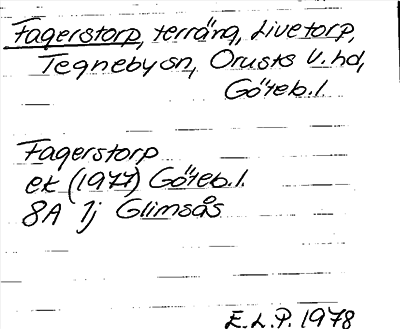 Fagerstorp, terräng, Livetorp,
Tegneby sn, Orusts V. hd,
Göteb. l.
Fagerstorp
ek (1977) Göteb. l.
8A 1j Glimsås
E. L. P. 1978